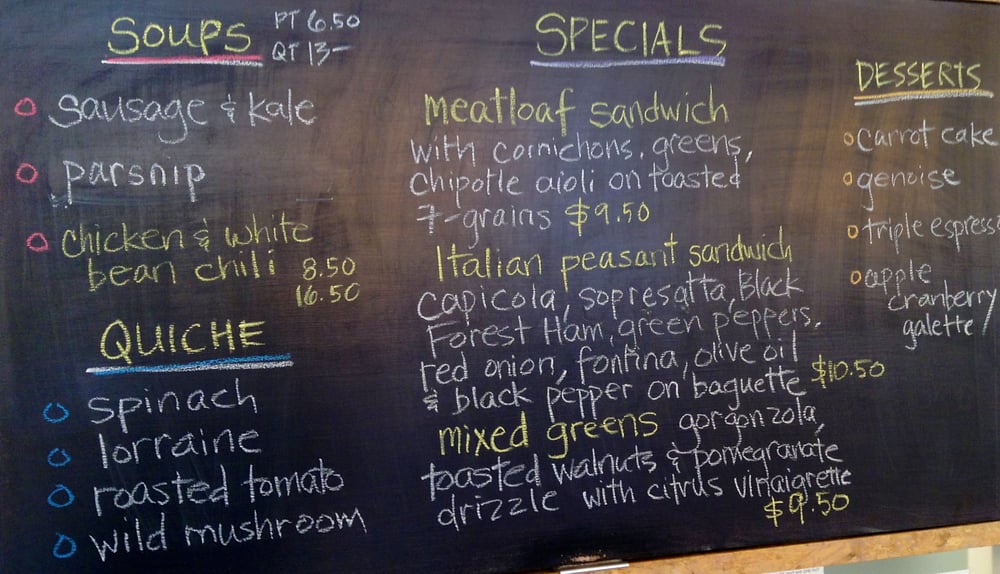 SOUPS
PT 6.50
QT 13-
sausage & kale
parsnip
chicken & white
bean chili 8.50
16.50
QUICHE
spinach
lorraine
roasted tomato
wild mushroom
SPECIALS
meatloaf sandwich
with cornichons, greens,
chipotle aioli on toasted
7-grains $9.50
Italian peasant sandwich
capicola, sopresatta, Black
Forest Ham, green peppers,
red onion, fontina, olive oil
& black pepper on baguette $10.50
mixed greens gorgonzola,
toasted walnuts & pomegranate
drizzle with citrus vinaigrette
$9.50
DESSERTS
carrot cake
genoise
triple espress
apple
cranberry
galette